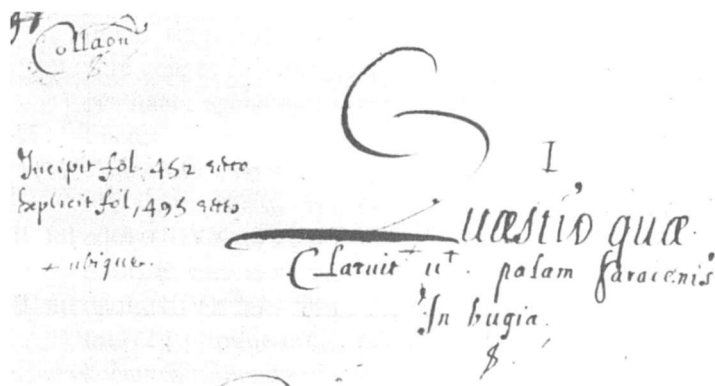 Incipit fol. 452 retro
Explicit fol, 495 retro
+ ubique.
I
Quæstio quæ
Claruit + ut. palam saracenis
In bugia.